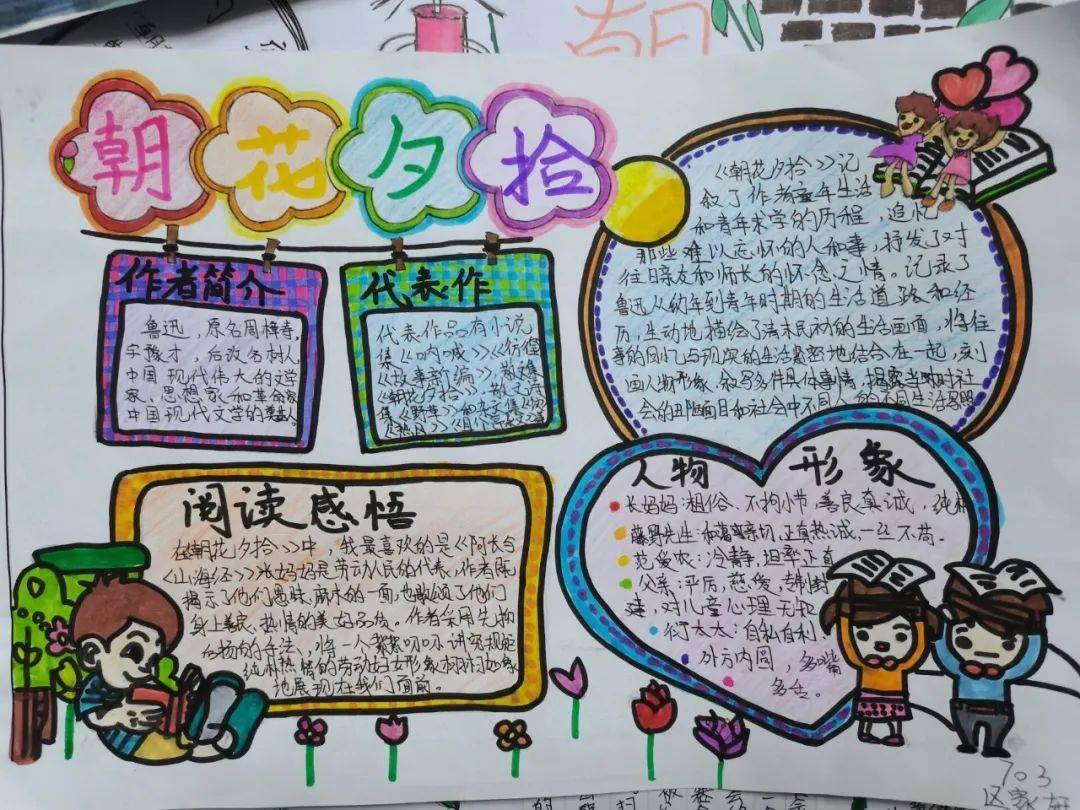 朝花夕拾
作者简介
鲁迅，原名周樟寿，
字豫才，后改名树人，
中国现代伟大的文学
家、思想家和革命家
中国现代文学的奠基人
代表作
代表作品有小说
集《呐喊》《彷徨》
《故事新编》，散文集
《朝花夕拾》，散文诗
集《野草》和杂文集
《热风》
《朝花夕拾》记
叙了作者童年生活
和青年求学的历程，追忆
那些难以忘怀的人和事，抒发了对
往日亲友和师长的怀念之情。记录了
鲁迅从幼年到青年时期的生活道路和经
历，生动地描绘了清末民初的生活画面，将往
事的回忆与现实的生活紧密地结合在一起，刻
画人物形象，叙写多件具体事情，揭露当时社
会的丑陋面目和社会中不同人的不同生活
阅读感悟
在朝花夕拾》中，我最喜欢的是《阿长与
《山海经》长妈妈是劳动人民的代表，作者既
揭示了他们愚昧麻木的一面，也歌颂了他们
身上善良、热情的美好品质。作者采用先抑
后扬的手法、将一个絮絮叨叨讲究规矩
纯朴热情的劳动妇女形象栩栩如
地展现在我们面前。
人物 形象
长妈妈：粗俗、不拘小节，善良真诚，纯朴
藤野先生：和蔼亲切，正直热诚，一丝不苟。
范爱农：冷静，坦率正直
父亲：平厉，慈爱，专制封
建，对儿童心理无知
衍太太：自私自利，
外方内圆，多嘴
多舌。
703